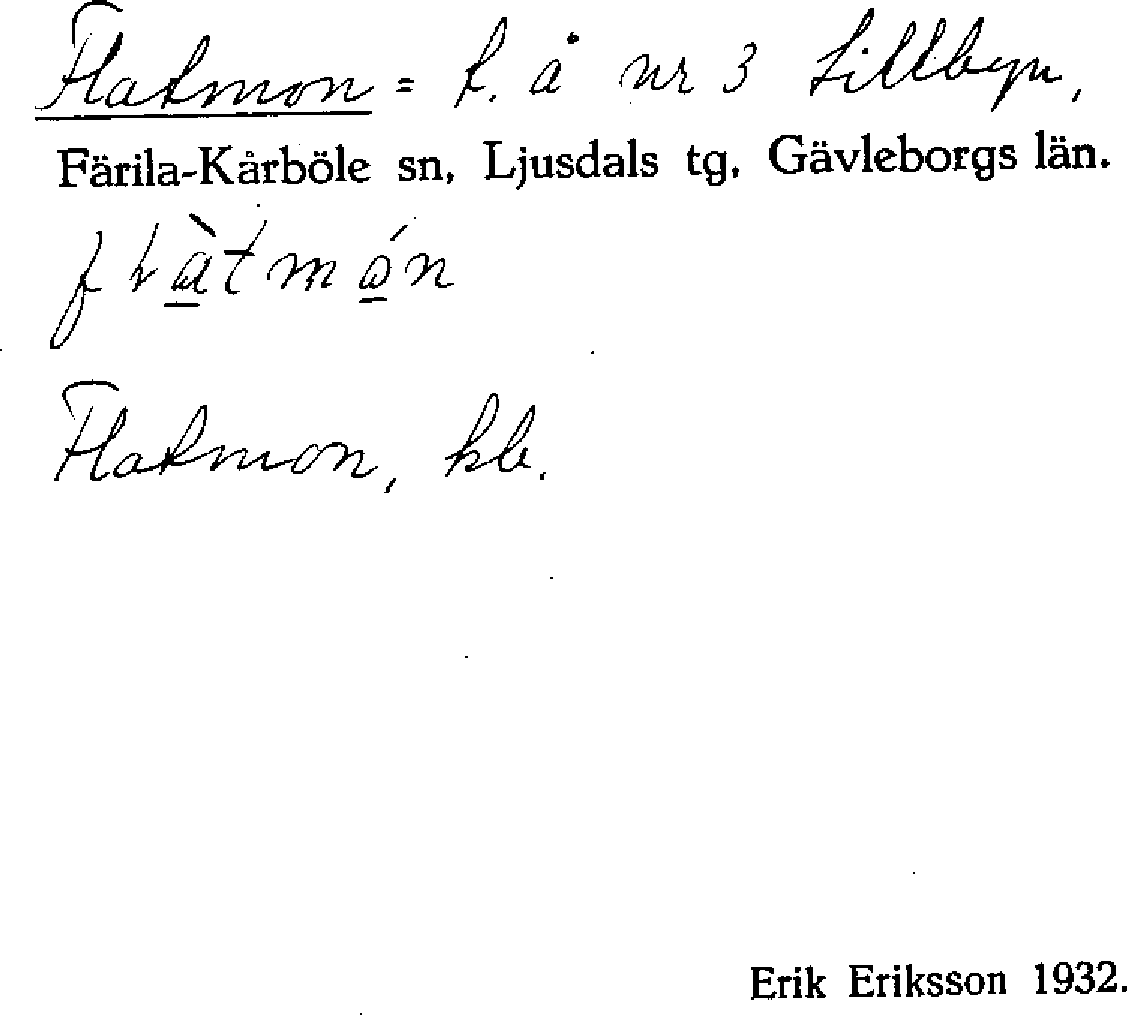 Flatmon = t. å nr 3 Lillbyn,
Färila-Kårböle sn, Ljusdals tg, Gävleborgs län.
Flatmon, kb.
Erik Eriksson 1932.